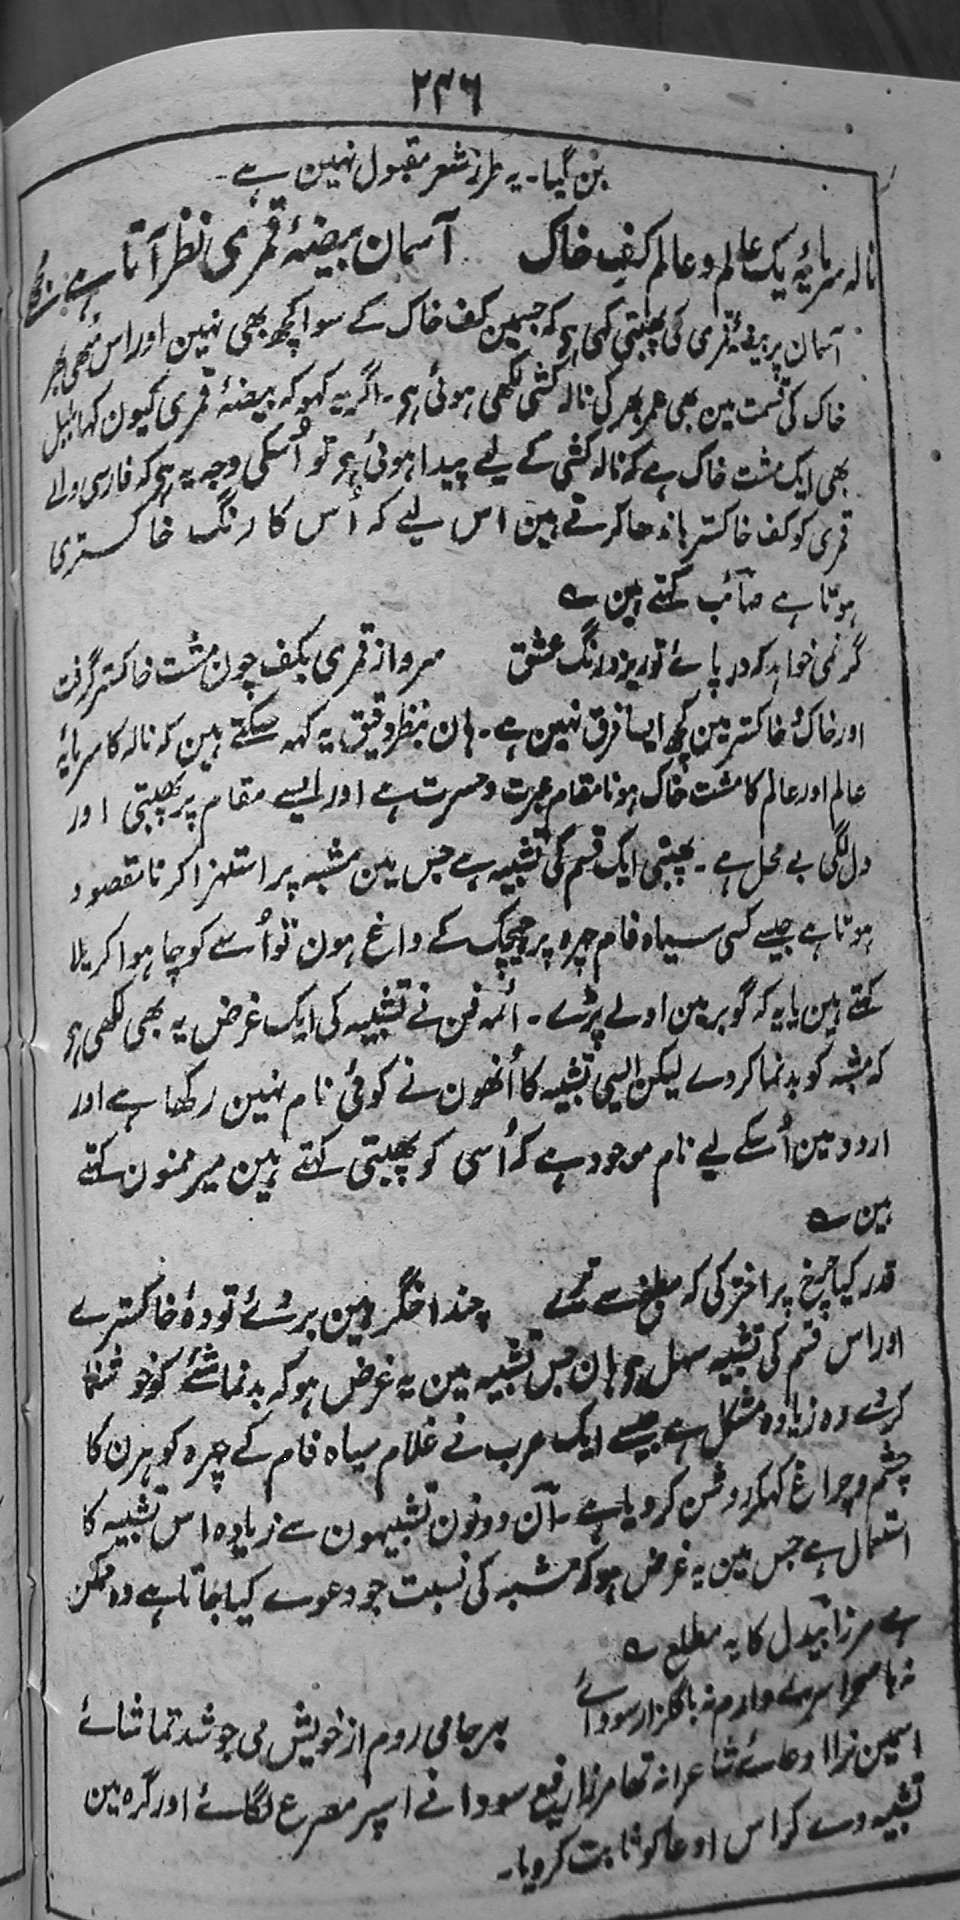 ۲۴۶
بن گیا۔ یہ طرز شعر مقبول نہین ہے۔
نالہ سرمایۂ یک عالم و عالم کفِ خاک آسمان بیضۂ قمری نظر آتا ہے مجھے
آسمان پر بیضۂ قمری کی پھبتی کہی ہی کہ جسمین کف خاک کے سوا کچھ بھی نہین اور اس مٹھی بھر
خاک کی قسمت مین بھی عمر بھر کی نالہ کشی لکھی ہوئی ہی۔ اگر یہ کہو کہ بیضۂ قمری کیون کہا بلبل
بھی ایک مشت خاک ہے کہ نالہ کشی کے لیے پیدا ہوئی ہی تو اُسکی وجہ یہ ہی کہ فارسی والے
قمری کو کف خاکستر باندھا کرتے ہین اس لیے کہ اُس کا رنگ خاکستری
ہوتا ہے صائب کہتے ہین ے
گر نمی خواہد کہ در پائے تو ریزد رنگ عشق سرو از قمری بکف چون مشت خاکستر گرفت
اور خاک و خاکستر مین کچھ ایسا فرق نہین ہے۔ ہان بنظر دقیق یہ کہہ سکتے ہین کہ نالہ کا سرمایۂ
عالم اور عالم کا مشت خاک ہونا مقام عبرت و حسرت ہے اور ایسے مقام پر پھبتی اور
دل لگی بے محل ہے۔ پھبتی ایک قسم کی تشبیہ ہے جس مین مشبہ پر استہزا کرنا مقصود
ہوتا ہے جیسے کسی سیاہ فام چہرہ پر چیچک کے داغ ہون تو اُسے کوچا ہوا کریلا
کہتے ہین یا یہ کہ گوبر مین اولے پڑے۔ ائمہ فن نے تشبیہ کی ایک غرض یہ بھی لکھی ہی
کہ مشبہ کو بدنما کردے لیکن ایسی تشبیہ کا اُنھون نے کوئی نام نہین رکھا ہے اور
اردو مین اُسکے لیے نام موجود ہے کہ اُسی کو پھبتی کہتے ہین میر ممنون کہتے
ہین ے
قدر کیا چرخ پر اختر کی کہ مطبخ سے ترے چند اخگر ہین برسئے تودۂ خاکسترے
اور اس قسم کی تشبیہ سہل ہی ہان جس تشبیہ مین یہ غرض ہو کہ بدنما شئے کو خوشنما
کرے وہ زیادہ مشکل ہے جیسے ایک عرب نے غلام سیاہ فام کے چہرہ کو ہرن کا
چشم و چراغ کہکر روشن کر دیا ہے۔ ان دونون تشبیہون سے زیادہ اس تشبیہ کا
استعمال ہے جس مین یہ غرض ہو کہ مشبہ کی نسبت جو دعوے کیا جاتا ہے وہ ممکن
ہے مرزا بیدل کا یہ مطلع ے
نہ با صحرا سرے دارم نہ با گلزار سودائے بہر جا می روم از خویش می جوشد تماشائے
اسمین نرا ادعائے شاعرانہ تھا مرزا رفیع سودا نے اسپر مصرع لگائے اور گرہ مین
تشبیہ دے کر اس ادعا کو ثابت کر دیا۔